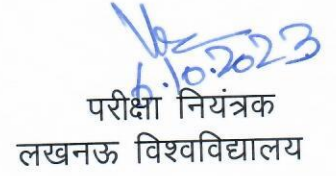 6.10.2023
परीक्षा नियंत्रक
लखनऊ विश्वविद्यालय